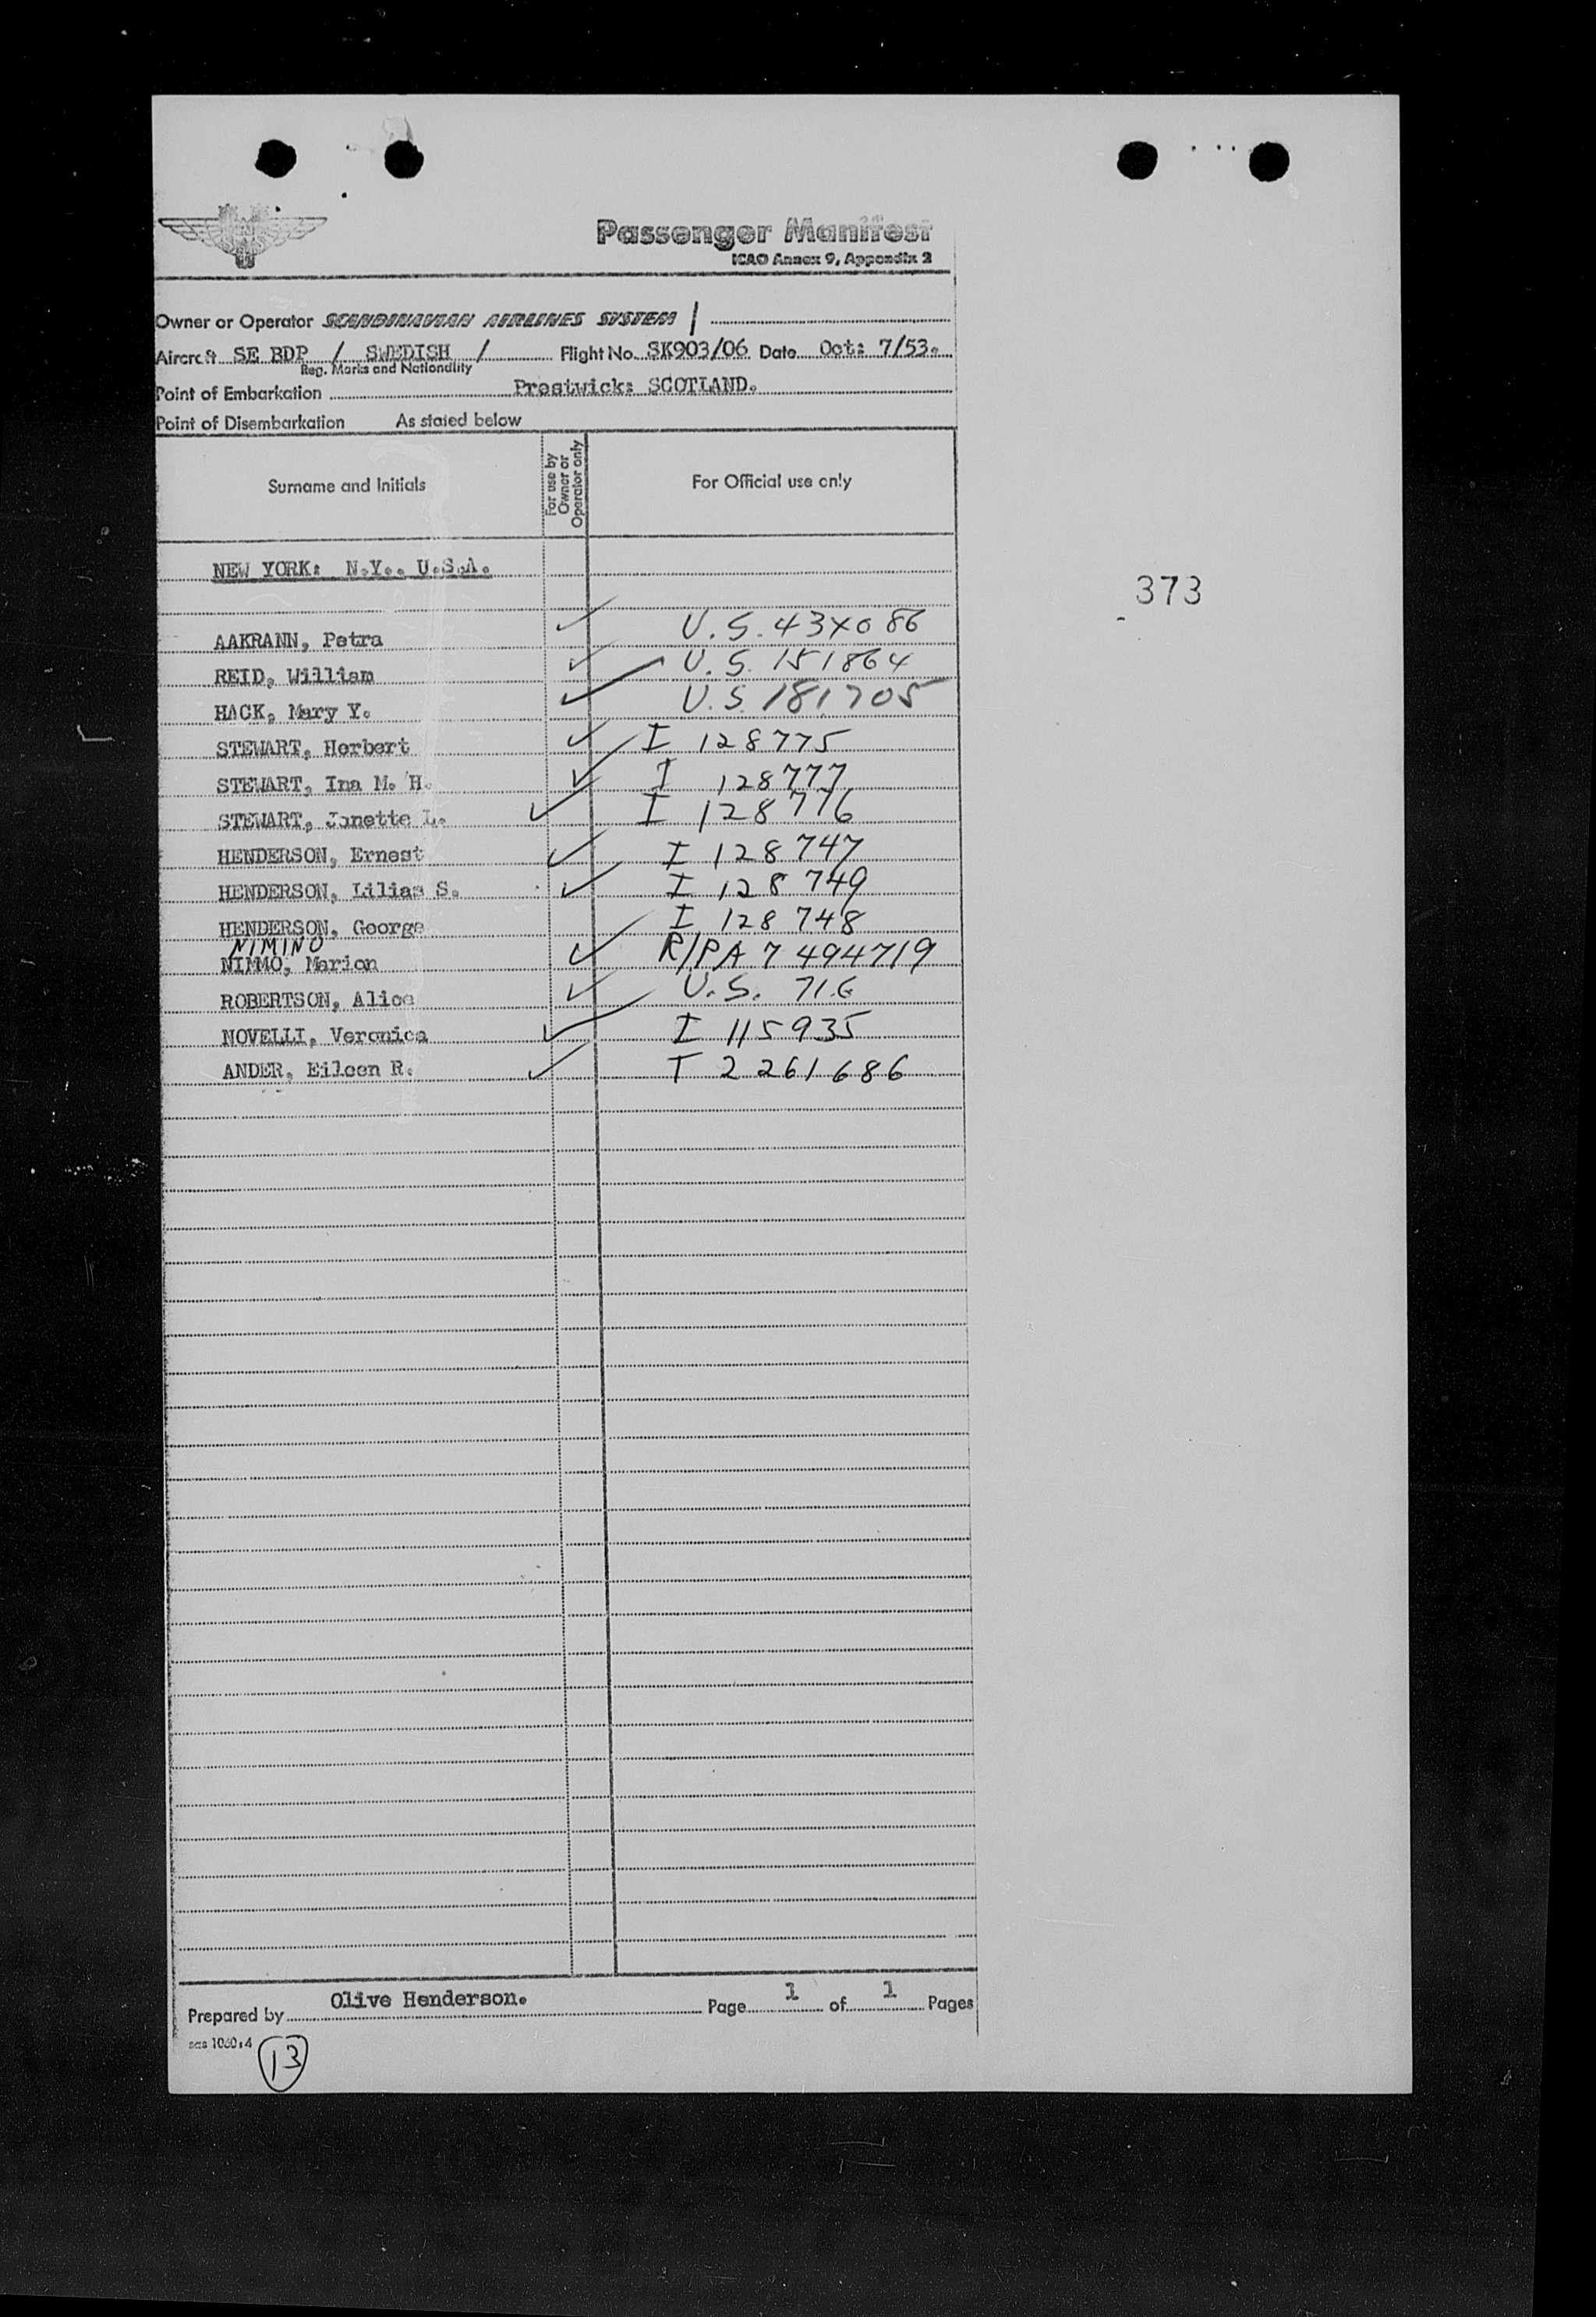 Passenger Manifest
ICAO Annex 9, Appendix 2
Owner or Operator SCANDINAVIAN AIRLINES SYSTEM
Aircraft SE BDP / SWEDISH / Flight No. SK903/06 Date Oct: 7/53.
Reg. Marks and Nationality
Point of Embarkation Prestwick: SCOTLAND.
Point of Disembarkation As stated below
Surname and Initials For use by Owner or Operator only For Official use only
NEW YORK: N.Y.. U.S.A.
373
AAKRANN, Petra U.S. 434086
REID, William U.S. 151864
HACK, Mary Y. U.S. 181705
STEWART, Herbert I 128775
STEWART, Ina M. H. I 128777
STEWART, Janette L. I 128776
HENDERSON, Ernest I 128747
HENDERSON, Lilias S. I 128749
HENDERSON, George I 128748
NIMINO
NIMMO, Marion R/P A 7 494719
ROBERTSON, Alice U.S. 716
NOVELLI, Veronica I 115935
ANDER, Eileen R. T 2261686
Prepared by Olive Henderson. Page 1 of 1 Pages
sas 1060:4
13